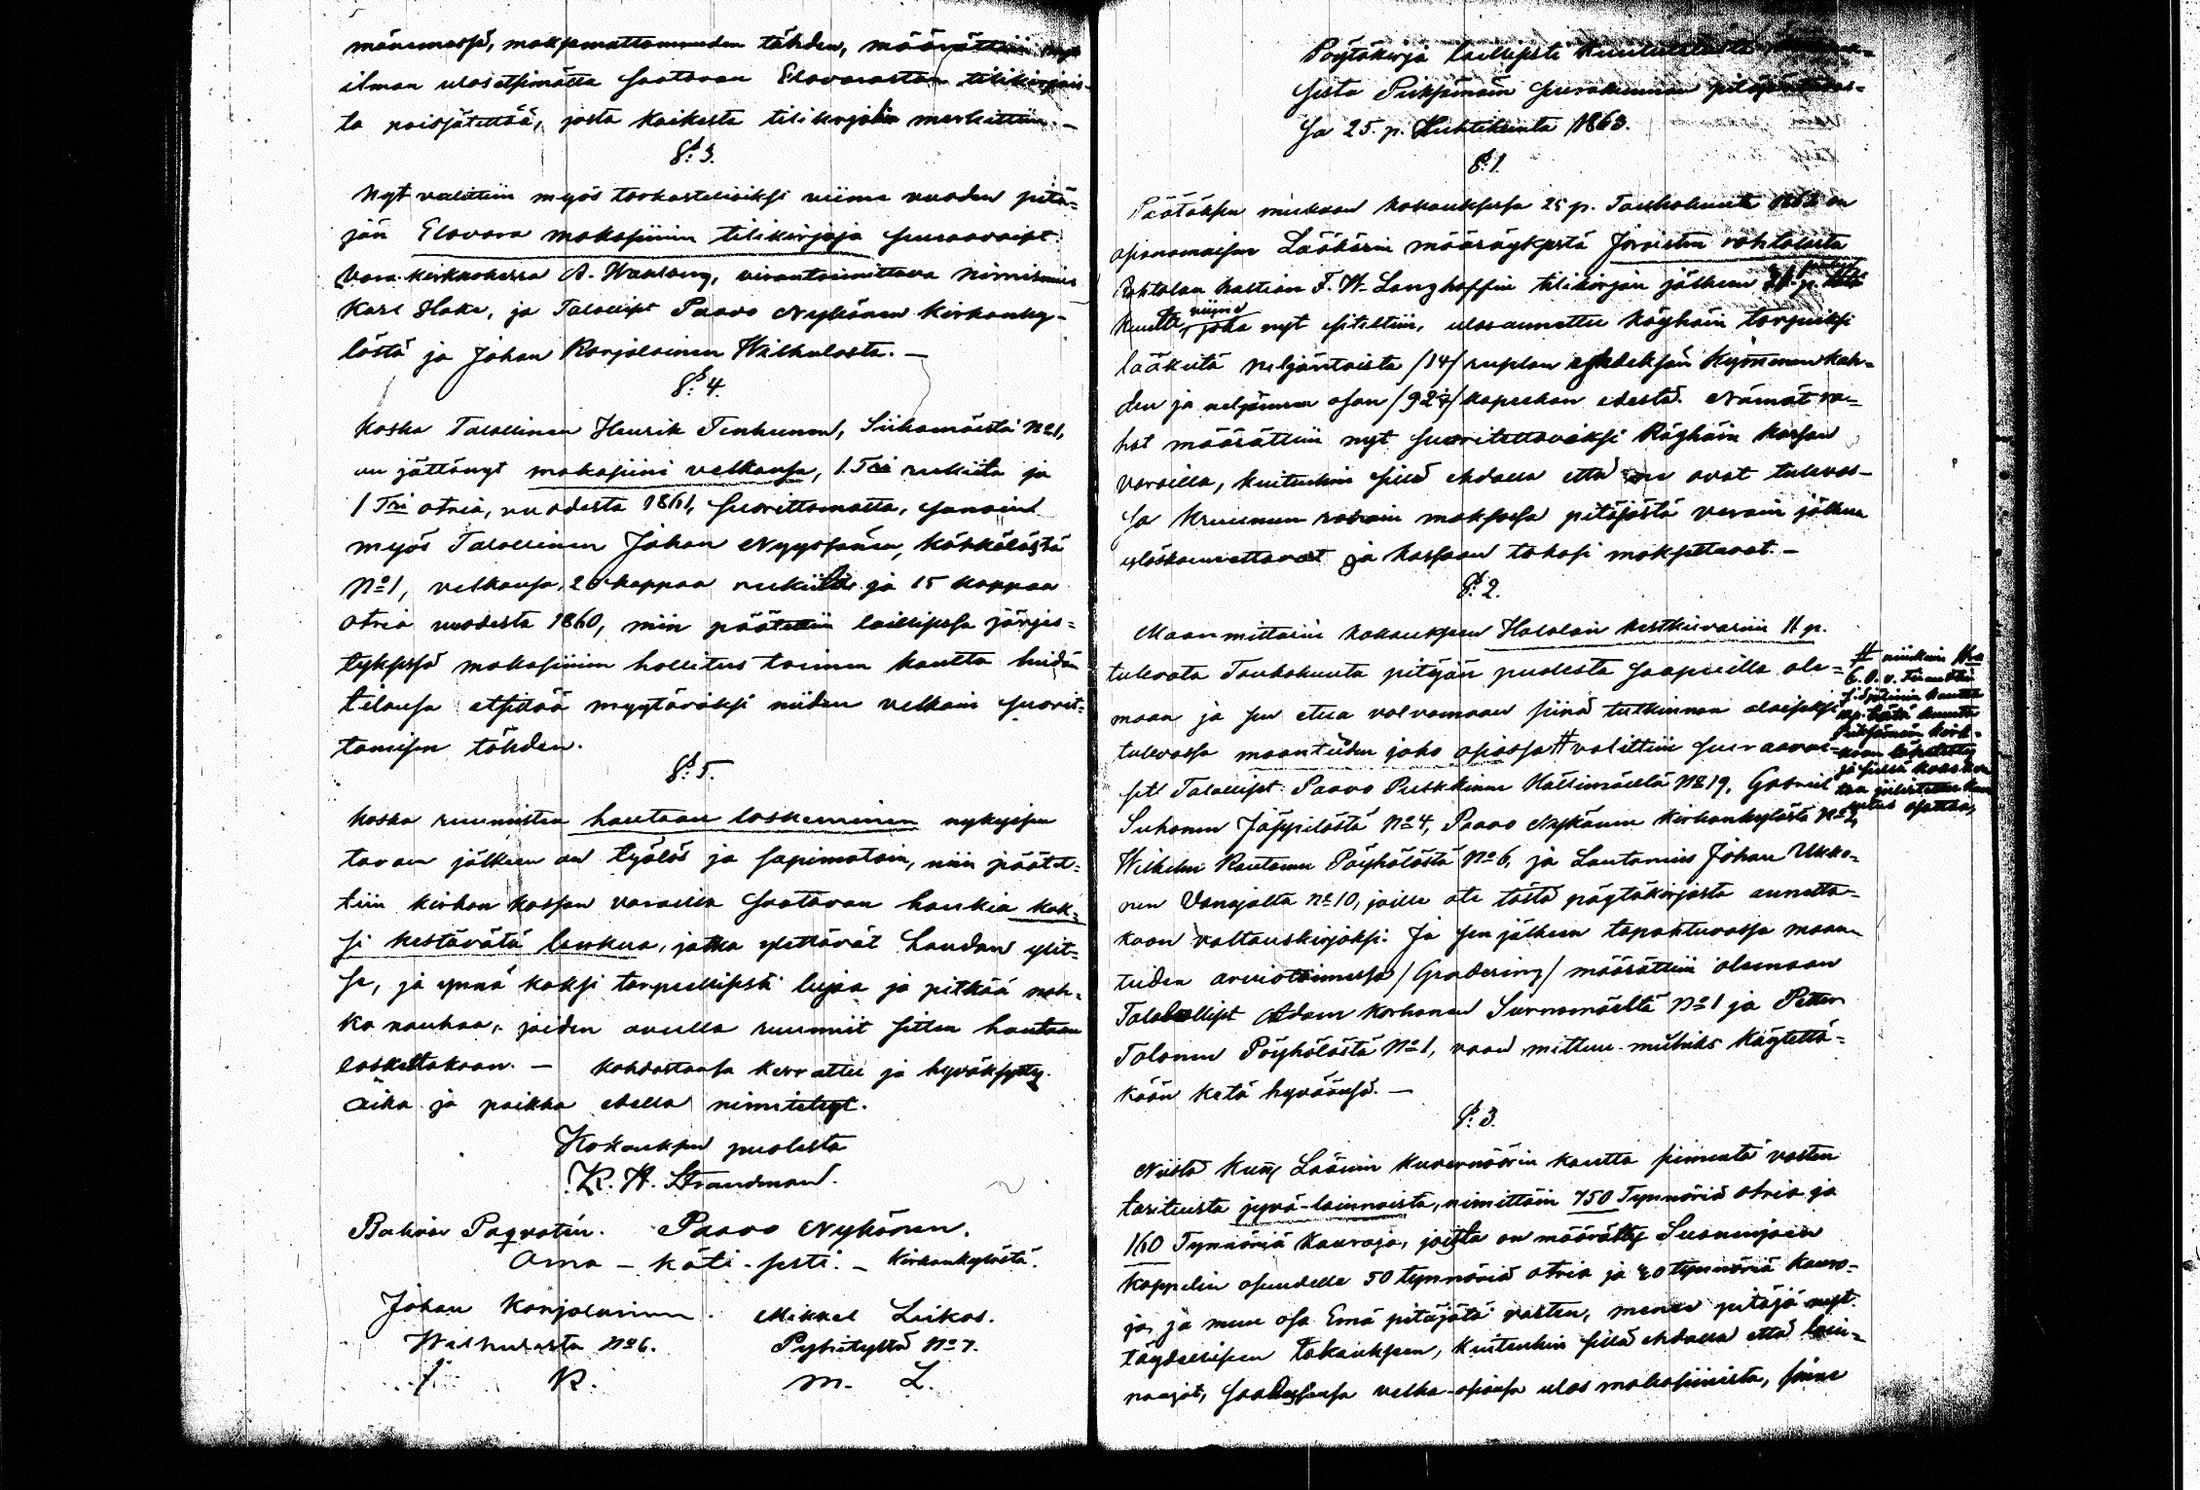 mänemässä, maksamattomuuden tähden, määrättiin
ilman ulosetsimättä saatavan Elovaraston tilikirjois-
ta poisjätettää, josta kaikesta tilikirjoihin merkittiin. —
§ 3.
Nyt valittiin myös tarkasteliaiksi viime vuoden pitä-
jän Elovara makasiinin tilikirjoja seuraavaiset:
Vara-kirkkoherra A. Warsberg, virantoimittava nimismies
Karl Hake, ja Talolliset Paavo Nykänen Kirkonky-
lästä ja Johan Karjalainen Wäihulasta. —
§ 4.
Koska Talollinen Henrik Tenhunen, Siikamäestä No 1,
on jättänyt makasiini velkansa, 1 Tri rukiita ja
1 Tri otria, vuodesta 1861, suorittamatta, samoin
myös Talollinen Johan Nyyssönen, Käkkälästä
No 1, velkansa, 20 kappaa rukiita ja 15 kappaa
otria vuodesta 1860, niin päätettiin laillisessa järjes-
tyksessä makasiinin hollitus toimen kautta heidän
tilansa etsittää myytäväksi niiden velkain suorit-
tamisen tähden.
§ 5.
Koska ruumisten hautaan laskeminen nykyisen
tavan jälkeen on työläs ja sopimatoin, niin päätet-
tiin kirkon kassan varoilla saatavan hankia kak-
si kestävätä lankua, jotka ylettävät haudan ylit-
se, ja ynnä kaksi tarpeellisesti lujaa ja pitkää nah-
ka nauhaa, joiden avulla ruumiit sitten hautaan
laskettakoon. — Kohdastansa kerrattu ja hyväksytty.
Aika ja paikka edellä nimitetyt.
Kokouksen puolesta
K. H. Strandman.
Balzar Paqvalin. Paavo Nykänen.
Oma – käti – sesti. – Kirkonkylästä.
Johan Karjalainen. Mikkel Liikas.
Wäihulasta No 6. Pyhitystä No 7.
J. K. M. L.
Pöytäkirja laillisesti kuulutetusta
sesta Pieksämäen seurakunnan pitäjäntuvas-
sa 25 p. Huhtikuuta 1863.
§ 1.
Päätöksen mukaan kokouksessa 25 p. Toukokuuta 1862 on
asianomaisen Lääkärin määräyksestä Joroisten rohtolasta
Rohtolan haltian F. W. Langhoffin tilikirjan jälkeen
kuulta, joka nyt esiteltiin, ulosannettu köyhäin tarpeiksi
lääkeitä neljäntoista /14/ ruplan yhdeksän kymmenen kah-
den ja neljännen osan /92¼/ kopeekan edestä. Nämät ra-
hat määrättiin nyt suoritettavaksi Köyhäin kassan
varoilla, kuitenkin sillä ehdolla että ne ovat tulevas-
sa kruunun rahain maksossa pitäjästä verain jälkeen
ylöskannettavat ja kassaan takasi maksettavat. —
§ 2.
Maanmittarin kokouksen Halolan kestkievarin 11 p.
tulevata Toukokuuta pitäjän puolesta saapuvilla ole-
maan ja sen etua valvomaan siinä tutkinnon alaiseksi
tulevassa maanteiden jako asiassa # valittiin seuraavai-
set Talolliset Paavo Puskkinen Hällinmäeltä No 19, Gabriel
Suhonen Jäppilästä No 4, Paavo Nykänen Kirkonkylästä No 2,
Wilhelm Rautanen Pöyhölästä No 6, ja Lautamies Johan Ukko-
nen Vanajalta No 10, joille ote tästä pöytäkirjasta annetta-
koon valtauskirjaksi. Ja sen jälkeen tapahtuvassa maan-
teiden arvioitoimessa /Gradering/ määrättiin olemaan
Talolliset Adam Korhonen Surnumäeltä No 1 ja Petter
Tolonen Pöyhölästä No 1, vaan mitten miehiks käytettä-
köön ketä hyväänsä. —
# niinkuin Hra
§ 3.
Niistä Kuv. Läänin Kuvernöörin kautta siementä vasten
taritusta jyvä-lainnoista, nimittäin 750 Tynnöriä otria ja
160 Tynnöriä kauroja, joista on määrätty Suonenjoen
kappelin osuudelle 50 tynnöriä otria ja 20 tynnöriä kauro-
ja, ja muu osa Emä pitäjätä vasten, menee pitäjä nyt.
täydelliseen takaukseen, kuitenkin sillä ehdolla että lain-
naajat, saadessansa velka-osansa ulos makasiinista, sinne